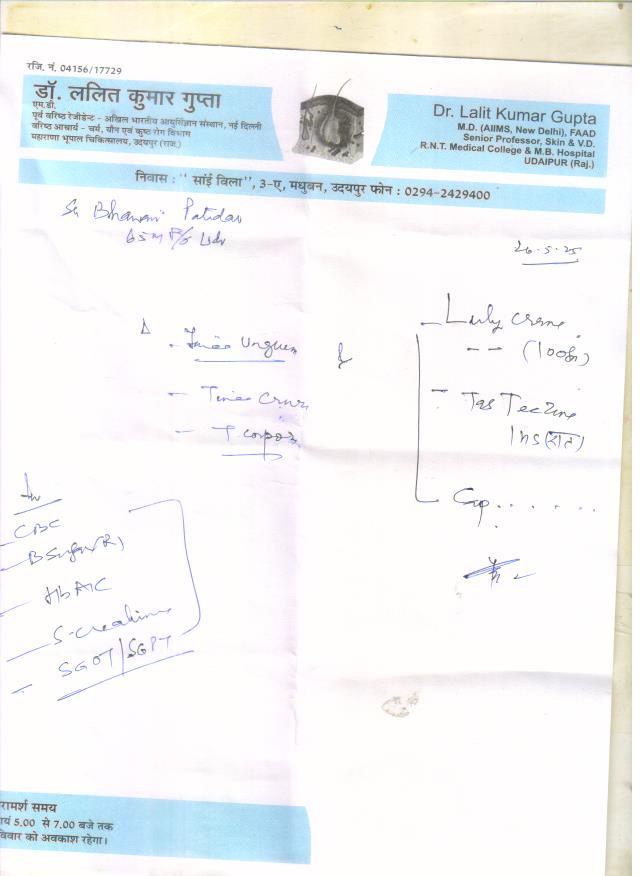 रजि. नं. 04156/17729
डॉ. ललित कुमार गुप्ता
एम.डी.
पूर्व वरिष्ठ रेजीडेन्ट - अखिल भारतीय आयुर्विज्ञान संस्थान, नई दिल्ली
वरिष्ठ आचार्य - चर्म, यौन एवं कुष्ठ रोग विभाग
महाराणा भूपाल चिकित्सालय, उदयपुर (राज.)
Dr. Lalit Kumar Gupta
M.D. (AIIMS, New Delhi), FAAD
Senior Professor, Skin & V.D.
R.N.T. Medical College & M.B. Hospital
UDAIPUR (Raj.)
निवास : " सांई विला", 3-ए, मधुबन, उदयपुर फोन : 0294-2429400
Patidar
65
26.5.25
Δ
Tinea Unguum
Tinea Cruris
T. corporis
Cream
-- (100
Tab Teczine
1 HS (रात)
Cap. . . . . . .
CBC
B Sugar (R)
HbA1C
S-creatinine
SGOT/SGPT
रामर्श समय
ायं 5.00 से 7.00 बजे तक
विवार को अवकाश रहेगा।